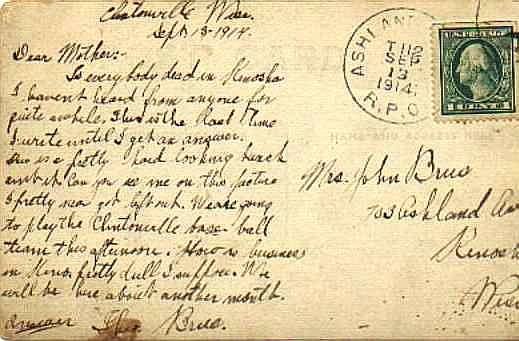 Clintonville Wisc.
Sept 13-1914.
Dear Mother:-
Is everybody dead in Kenosha
I havent heard from anyone for
quite awhile. This is the last time
I write until I get an answer.
This is a pretty hard looking bunch
aint it Can you see me on this picture
I pretty near got left out. We are going
to play the Clintonville base ball
team this afternoon. How is business
in Keno, pretty dull I suppose. We
will be here about another month.
answer Brus.
ASHLAND
T 112
SEP
13
1914
R.P.O.
U.S. POSTAGE
1 CENT 1
Mrs. John Brus
Ashland Av
Kenosh
Wisc